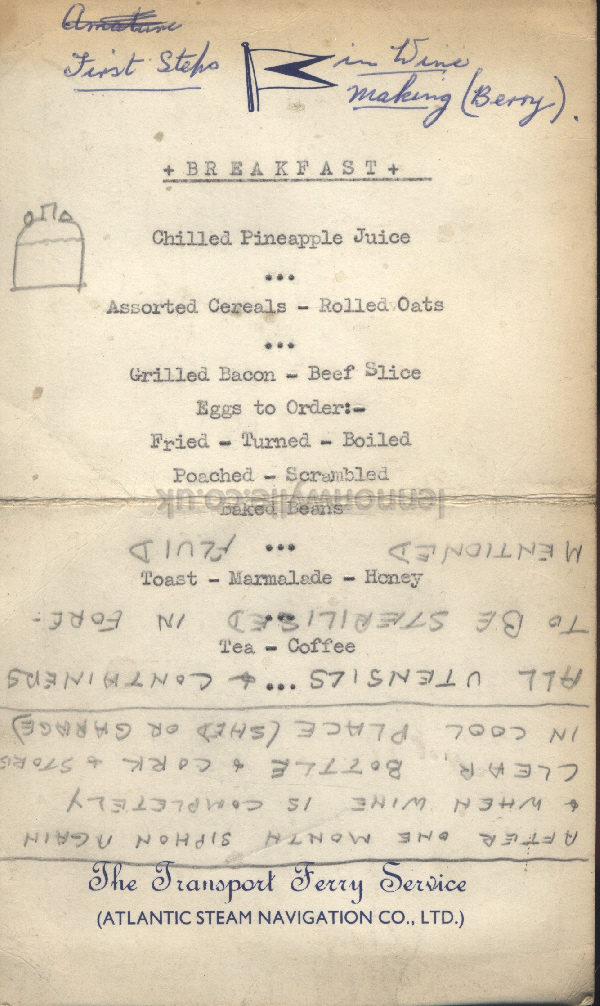 Amature
First Steps in Wine
Making (Berry).
+ BREAKFAST +
Chilled Pineapple Juice
...
Assorted Cereals - Rolled Oats
...
Grilled Bacon - Beef Slice
Eggs to Order:-
Fried - Turned - Boiled
Poached - Scrambled
Baked Beans
...
Toast - Marmalade - Honey
...
Tea - Coffee
...
The Transport Ferry Service
(ATLANTIC STEAM NAVIGATION CO., LTD.)
AFTER ONE MONTH SIPHON AGAIN
& WHEN WINE IS COMPLETELY
CLEAR, BOTTLE & CORK & STORE
IN COOL PLACE (SHED OR GARAGE)
ALL UTENSILS & CONTAINERS
TO BE STERILISED IN FORE-
MENTIONED FLUID
lennonwylie.co.uk